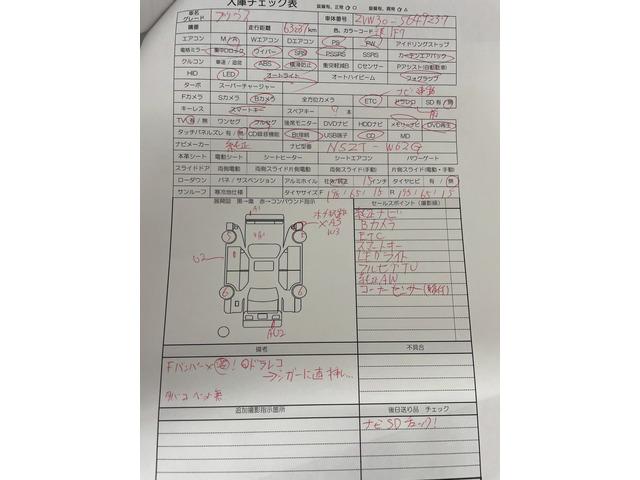 入庫チェック表 装備有、正常 ○ 装備有、異常 △
車名 グレード プリウス 走行距離 63287km 車体番号 ZVW30-5649257
色、カラーコード 1F7
エアコン M/A Wエアコン Dエアコン PS PW アイドリングストップ
電格ミラー 集中ロック ワイパー SRS PSSRS SSRS カーテンエアバック
クルコン 車速/追従 ABS 横滑防止 衝突軽減B Cセンサー Pアシスト(自動駐車)
HID LED オートライト オートハイビーム フォグランプ
ターボ スーパーチャージャー ナビ連動
Fカメラ Sカメラ Bカメラ 全方位カメラ ETC ドラレコ SD 有/無
キーレス スマートキー スペアキー 本
TV 有/無 ワンセグ フルセグ 後席モニター DVDナビ HDDナビ メモリーナビ DVD再生
タッチパネルズレ 有/無 CD録音機能 Bt接続 USB端子 CD MD
ナビメーカー 純正 ナビ型番 NSZT-W62G
本革シート 電動シート シートヒーター シートエアコン パワーゲート
スライドドア 両側電動 両側スライド片側電動 両側スライド(手動) 片側スライド(手動・電動)
ローダウン バネ/サスペンション アルミホイール 社外/純正 15インチ タイヤヒビ 有/無
サンルーフ 寒冷地仕様 タイヤサイズ F 195/65/15 R 195/65/15
展開図 黒→黒 赤→コンパウンド指示
セールスポイント(撮影順)
A1
XA3
W3
U2
5 5
6 6
AU2
純正ナビ
Bカメラ
ETC
スマートキー
LEDライト
フルセグTV
純正AW
コーナーセンサー(後付)
備考 不具合
Fバンパー ドラレコ
→シガーに直挿し...
タバコ ペット無
追加撮影指示箇所 後日送り品 チェック
ナビSDチェック!